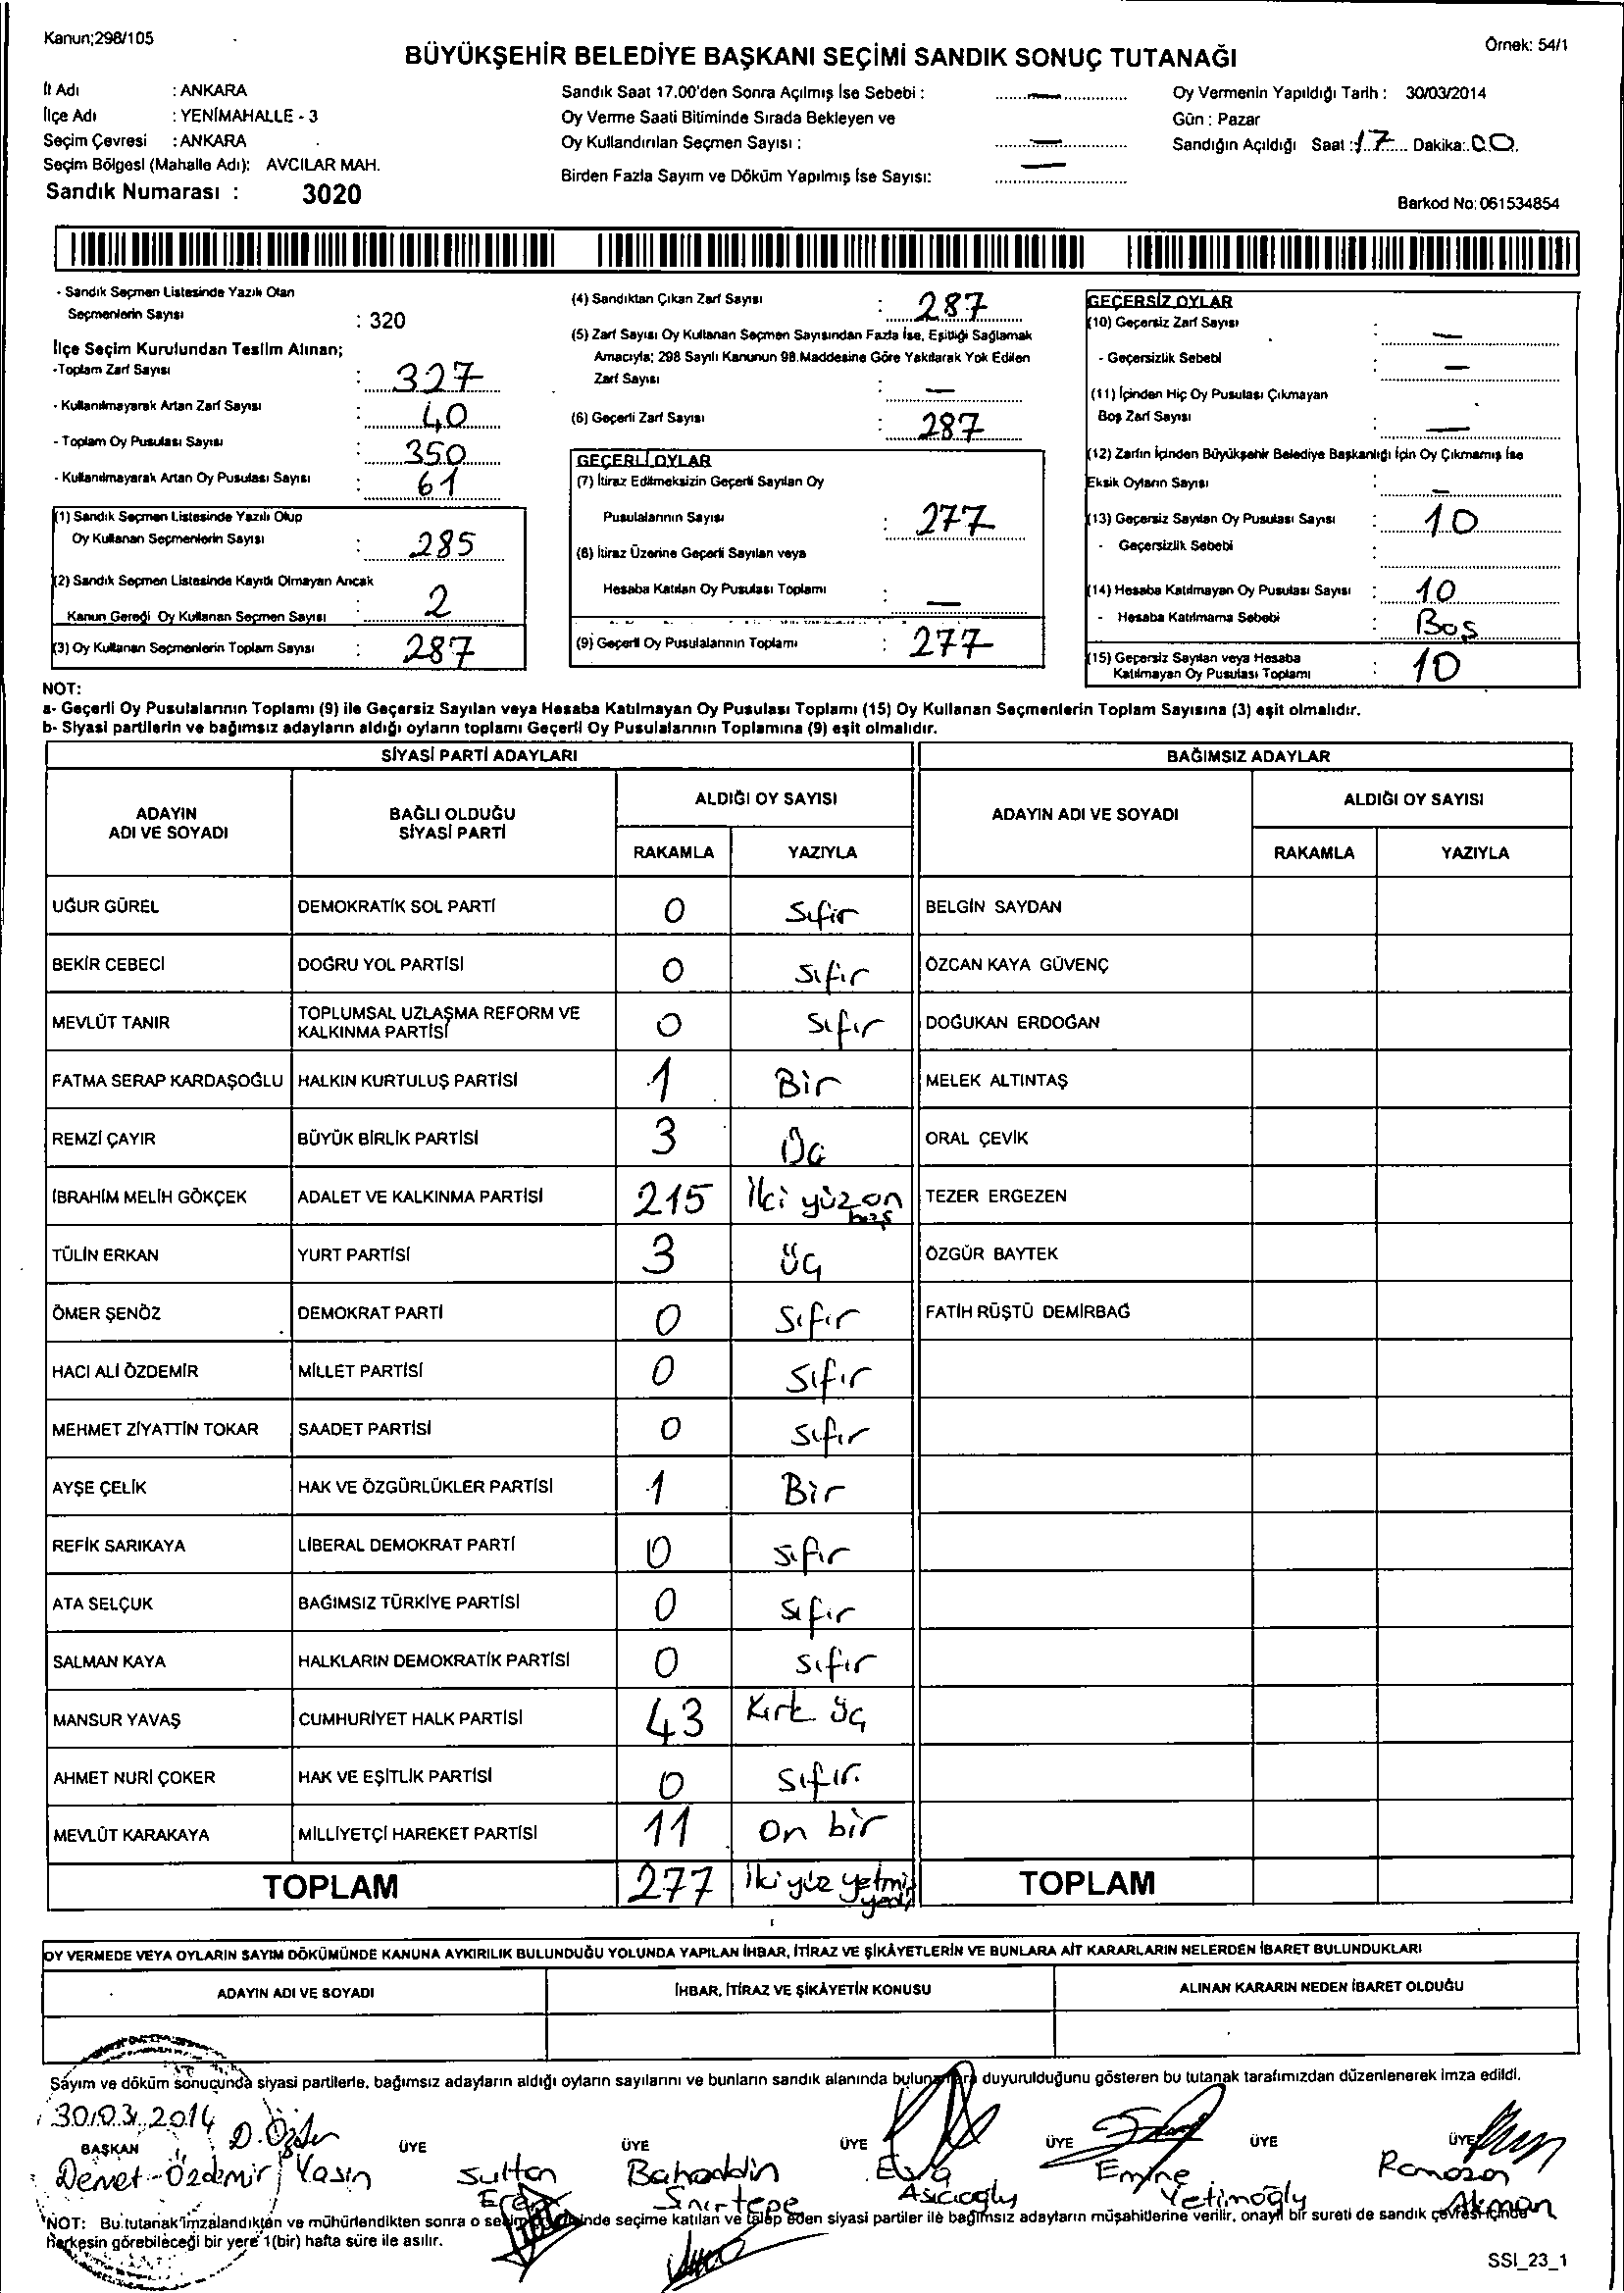 Kanun;298/105
Örnek: 54/1
BÜYÜKŞEHİR BELEDİYE BAŞKANI SEÇİMİ SANDIK SONUÇ TUTANAĞI
İl Adı : ANKARA
İlçe Adı : YENİMAHALLE - 3
Seçim Çevresi : ANKARA
Seçim Bölgesi (Mahalle Adı): AVCILAR MAH.
Sandık Numarası : 3020
Sandık Saat 17.00'den Sonra Açılmış İse Sebebi : —
Oy Verme Saati Bitiminde Sırada Bekleyen ve
Oy Kullandırılan Seçmen Sayısı : —
Birden Fazla Sayım ve Döküm Yapılmış İse Sayısı: —
Oy Vermenin Yapıldığı Tarih : 30/03/2014
Gün : Pazar
Sandığın Açıldığı Saat : 17 Dakika: 00
Barkod No: 061534854
- Sandık Seçmen Listesinde Yazılı Olan
Seçmenlerin Sayısı : 320
İlçe Seçim Kurulundan Teslim Alınan;
-Toplam Zarf Sayısı : 327
- Kullanılmayarak Artan Zarf Sayısı : 40
- Toplam Oy Pusulası Sayısı : 350
- Kullanılmayarak Artan Oy Pusulası Sayısı : 61
(1) Sandık Seçmen Listesinde Yazılı Olup
Oy Kullanan Seçmenlerin Sayısı : 285
(2) Sandık Seçmen Listesinde Kayıtlı Olmayan Ancak
Kanun Gereği Oy Kullanan Seçmen Sayısı : 2
(3) Oy Kullanan Seçmenlerin Toplam Sayısı : 287
(4) Sandıktan Çıkan Zarf Sayısı : 287
(5) Zarf Sayısı Oy Kullanan Seçmen Sayısından Fazla İse, Eşitliği Sağlamak
Amacıyla; 298 Sayılı Kanunun 98.Maddesine Göre Yakılarak Yok Edilen
Zarf Sayısı : —
(6) Geçerli Zarf Sayısı : 287
GEÇERLİ OYLAR
(7) İtiraz Edilmeksizin Geçerli Sayılan Oy
Pusulalarının Sayısı : 277
(8) İtiraz Üzerine Geçerli Sayılan veya
Hesaba Katılan Oy Pusulası Toplamı : —
(9) Geçerli Oy Pusulalarının Toplamı : 277
GEÇERSİZ OYLAR
(10) Geçersiz Zarf Sayısı : —
- Geçersizlik Sebebi : —
(11) İçinden Hiç Oy Pusulası Çıkmayan
Boş Zarf Sayısı : —
(12) Zarfın İçinden Büyükşehir Belediye Başkanlığı İçin Oy Çıkmamış İse
Eksik Oyların Sayısı : —
(13) Geçersiz Sayılan Oy Pusulası Sayısı : 10
- Geçersizlik Sebebi :
(14) Hesaba Katılmayan Oy Pusulası Sayısı : 10
- Hesaba Katılmama Sebebi : Boş
(15) Geçersiz Sayılan veya Hesaba
Katılmayan Oy Pusulası Toplamı : 10
NOT:
a- Geçerli Oy Pusulalarının Toplamı (9) ile Geçersiz Sayılan veya Hesaba Katılmayan Oy Pusulası Toplamı (15) Oy Kullanan Seçmenlerin Toplam Sayısına (3) eşit olmalıdır.
b- Siyasi partilerin ve bağımsız adayların aldığı oyların toplamı Geçerli Oy Pusulalarının Toplamına (9) eşit olmalıdır.
SİYASİ PARTİ ADAYLARI BAĞIMSIZ ADAYLAR
ADAYIN ADI VE SOYADI BAĞLI OLDUĞU SİYASİ PARTİ ALDIĞI OY SAYISI ADAYIN ADI VE SOYADI ALDIĞI OY SAYISI
RAKAMLA YAZIYLA RAKAMLA YAZIYLA
UĞUR GÜREL DEMOKRATİK SOL PARTİ 0 Sıfır BELGİN SAYDAN
BEKİR CEBECİ DOĞRU YOL PARTİSİ 0 Sıfır ÖZCAN KAYA GÜVENÇ
MEVLÜT TANIR TOPLUMSAL UZLAŞMA REFORM VE KALKINMA PARTİSİ 0 Sıfır DOĞUKAN ERDOĞAN
FATMA SERAP KARDAŞOĞLU HALKIN KURTULUŞ PARTİSİ 1 Bir MELEK ALTINTAŞ
REMZİ ÇAYIR BÜYÜK BİRLİK PARTİSİ 3 Üç ORAL ÇEVİK
İBRAHİM MELİH GÖKÇEK ADALET VE KALKINMA PARTİSİ 215 İki yüz on beş TEZER ERGEZEN
TÜLİN ERKAN YURT PARTİSİ 3 üç ÖZGÜR BAYTEK
ÖMER ŞENÖZ DEMOKRAT PARTİ 0 Sıfır FATİH RÜŞTÜ DEMİRBAĞ
HACI ALİ ÖZDEMİR MİLLET PARTİSİ 0 Sıfır
MEHMET ZİYATTİN TOKAR SAADET PARTİSİ 0 Sıfır
AYŞE ÇELİK HAK VE ÖZGÜRLÜKLER PARTİSİ 1 Bir
REFİK SARIKAYA LİBERAL DEMOKRAT PARTİ 0 Sıfır
ATA SELÇUK BAĞIMSIZ TÜRKİYE PARTİSİ 0 Sıfır
SALMAN KAYA HALKLARIN DEMOKRATİK PARTİSİ 0 Sıfır
MANSUR YAVAŞ CUMHURİYET HALK PARTİSİ 43 Kırk üç
AHMET NURİ ÇOKER HAK VE EŞİTLİK PARTİSİ 0 Sıfır.
MEVLÜT KARAKAYA MİLLİYETÇİ HAREKET PARTİSİ 11 On bir
TOPLAM 277 İki yüz yetmiş yedi TOPLAM
OY VERMEDE VEYA OYLARIN SAYIM DÖKÜMÜNDE KANUNA AYKIRILIK BULUNDUĞU YOLUNDA YAPILAN İHBAR, İTİRAZ VE ŞİKÂYETLERİN VE BUNLARA AİT KARARLARIN NELERDEN İBARET BULUNDUKLARI
ADAYIN ADI VE SOYADI İHBAR, İTİRAZ VE ŞİKÂYETİN KONUSU ALINAN KARARIN NEDEN İBARET OLDUĞU
Sayım ve döküm sonucunda siyasi partilerle, bağımsız adayların aldığı oyların sayılarını ve bunların sandık alanında bulunanlara duyurulduğunu gösteren bu tutanak tarafımızdan düzenlenerek imza edildi.
30.03.2014
BAŞKAN ÜYE ÜYE ÜYE ÜYE ÜYE ÜYE
Demet Özdemir Yasin Sultan Bahaddin Esra Emine Ramazan
Sınırtepe Aşcıoğlu Yetimoğlu Akman
NOT: Bu tutanak imzalandıktan ve mühürlendikten sonra o seçim içinde seçime katılan ve talep eden siyasi partiler ile bağımsız adayların müşahitlerine verilir, onaylı bir sureti de sandık çevresi içinde
herkesin görebileceği bir yere 1(bir) hafta süre ile asılır.
SSI_23_1